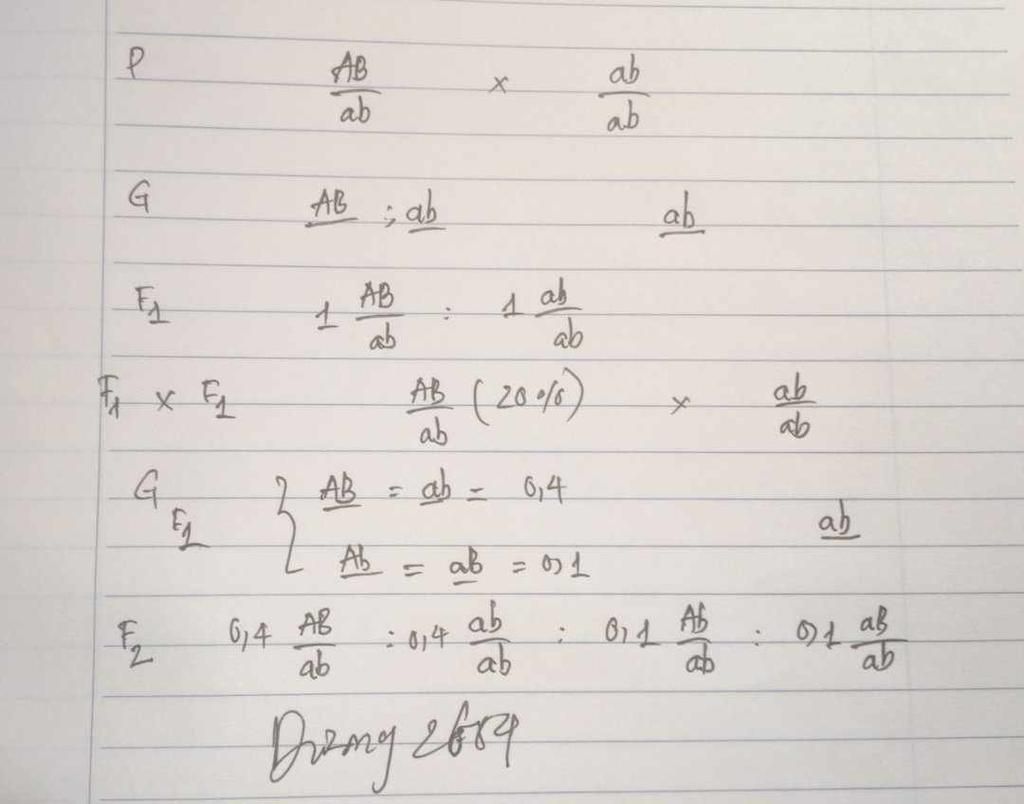 P AB/ab × ab/ab
G AB ; ab ab
F1 1 AB/ab : 1 ab/ab
F1 × F1 AB/ab (20%) × ab/ab
GF1 { AB = ab = 0,4 ab
Ab = aB = 0,1
F2 0,4 AB/ab : 0,4 ab/ab : 0,1 Ab/ab : 0,1 aB/ab